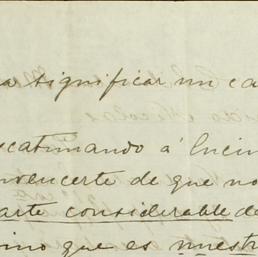 a significar un ca
scatimando á Encin
nvencerte de que no
arte considerable de
ino que es nuestr